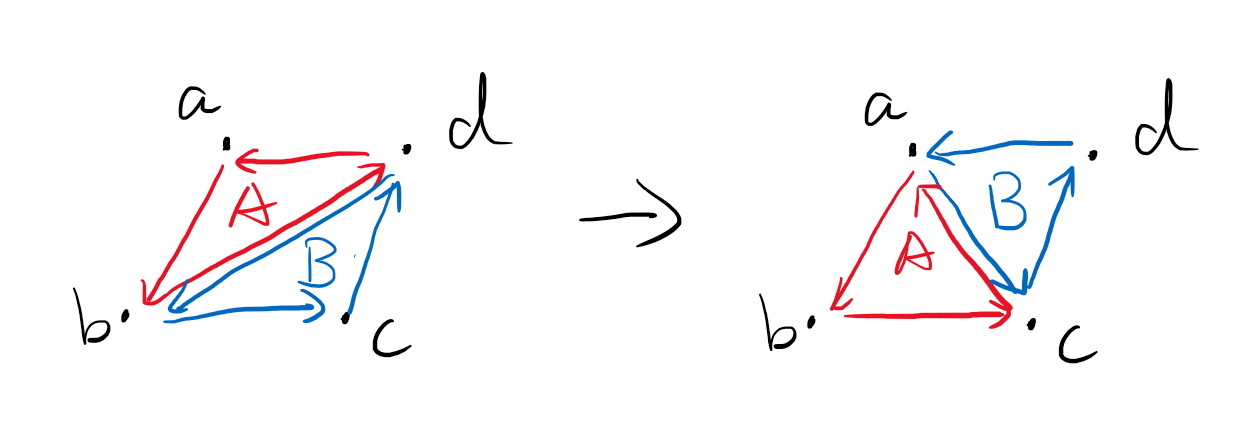 a d
A
B
b c
a d
B
A
b c